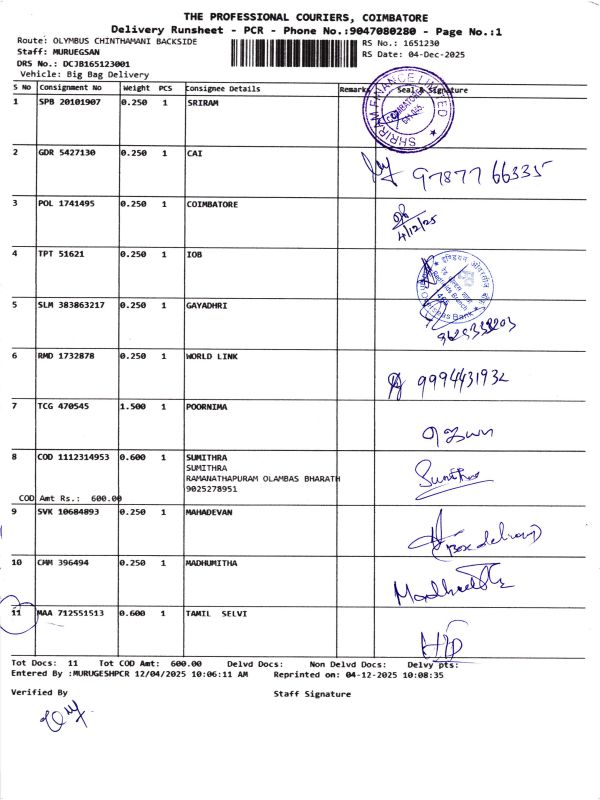 THE PROFESSIONAL COURIERS, COIMBATORE
Delivery Runsheet - PCR - Phone No.:9047080280 - Page No.:1
Route: OLYMBUS CHINTHAMANI BACKSIDE
RS No.: 1651230
Staff: MURUEGSAN
RS Date: 04-Dec-2025
DRS No.: DCJB165123001
Vehicle: Big Bag Delivery
S No Consignment No Weight PCS Consignee Details Remarks Seal & Signature
1 SPB 20101907 0.250 1 SRIRAM
SHRIRAM FINANCE LIMITED
2 GDR 5427130 0.250 1 CAI
97877 66335
3 POL 1741495 0.250 1 COIMBATORE
4/12/25
4 TPT 51621 0.250 1 IOB
5 SLM 383863217 0.250 1 GAYADHRI
6 RMD 1732878 0.250 1 WORLD LINK
9994431932
7 TCG 470545 1.500 1 POORNIMA
8 COD 1112314953 0.600 1 SUMITHRA
SUMITHRA
RAMANATHAPURAM OLAMBAS BHARATH
9025278951
Sumithra
COD Amt Rs.: 600.00
9 SVK 10684893 0.250 1 MAHADEVAN
10 CMM 396494 0.250 1 MADHUMITHA
11 MAA 712551513 0.600 1 TAMIL SELVI
Tot Docs: 11 Tot COD Amt: 600.00 Delvd Docs: Non Delvd Docs: Delvy pts:
Entered By :MURUGESHPCR 12/04/2025 10:06:11 AM Reprinted on: 04-12-2025 10:08:35
Verified By Staff Signature